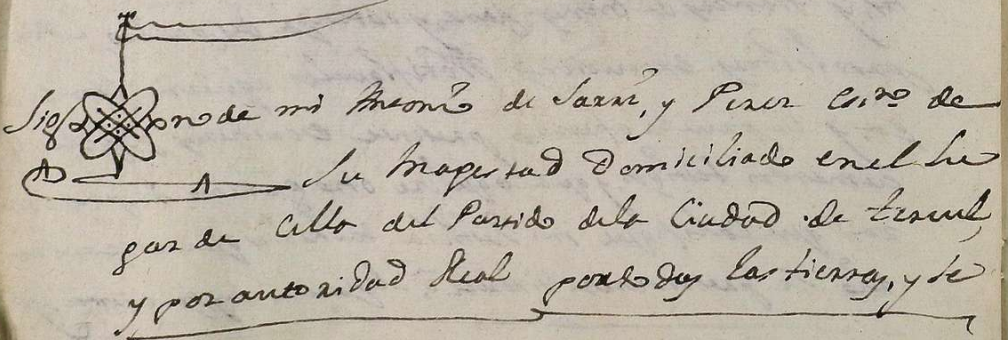 Sig no de mi Antonio de Sanz, y Perez Essno de
Su Magestad Domiciliado en el Lu
gar de Cella del Partido dela Ciudad de teruel,
y por autoridad Real por todas las tierras, y Se